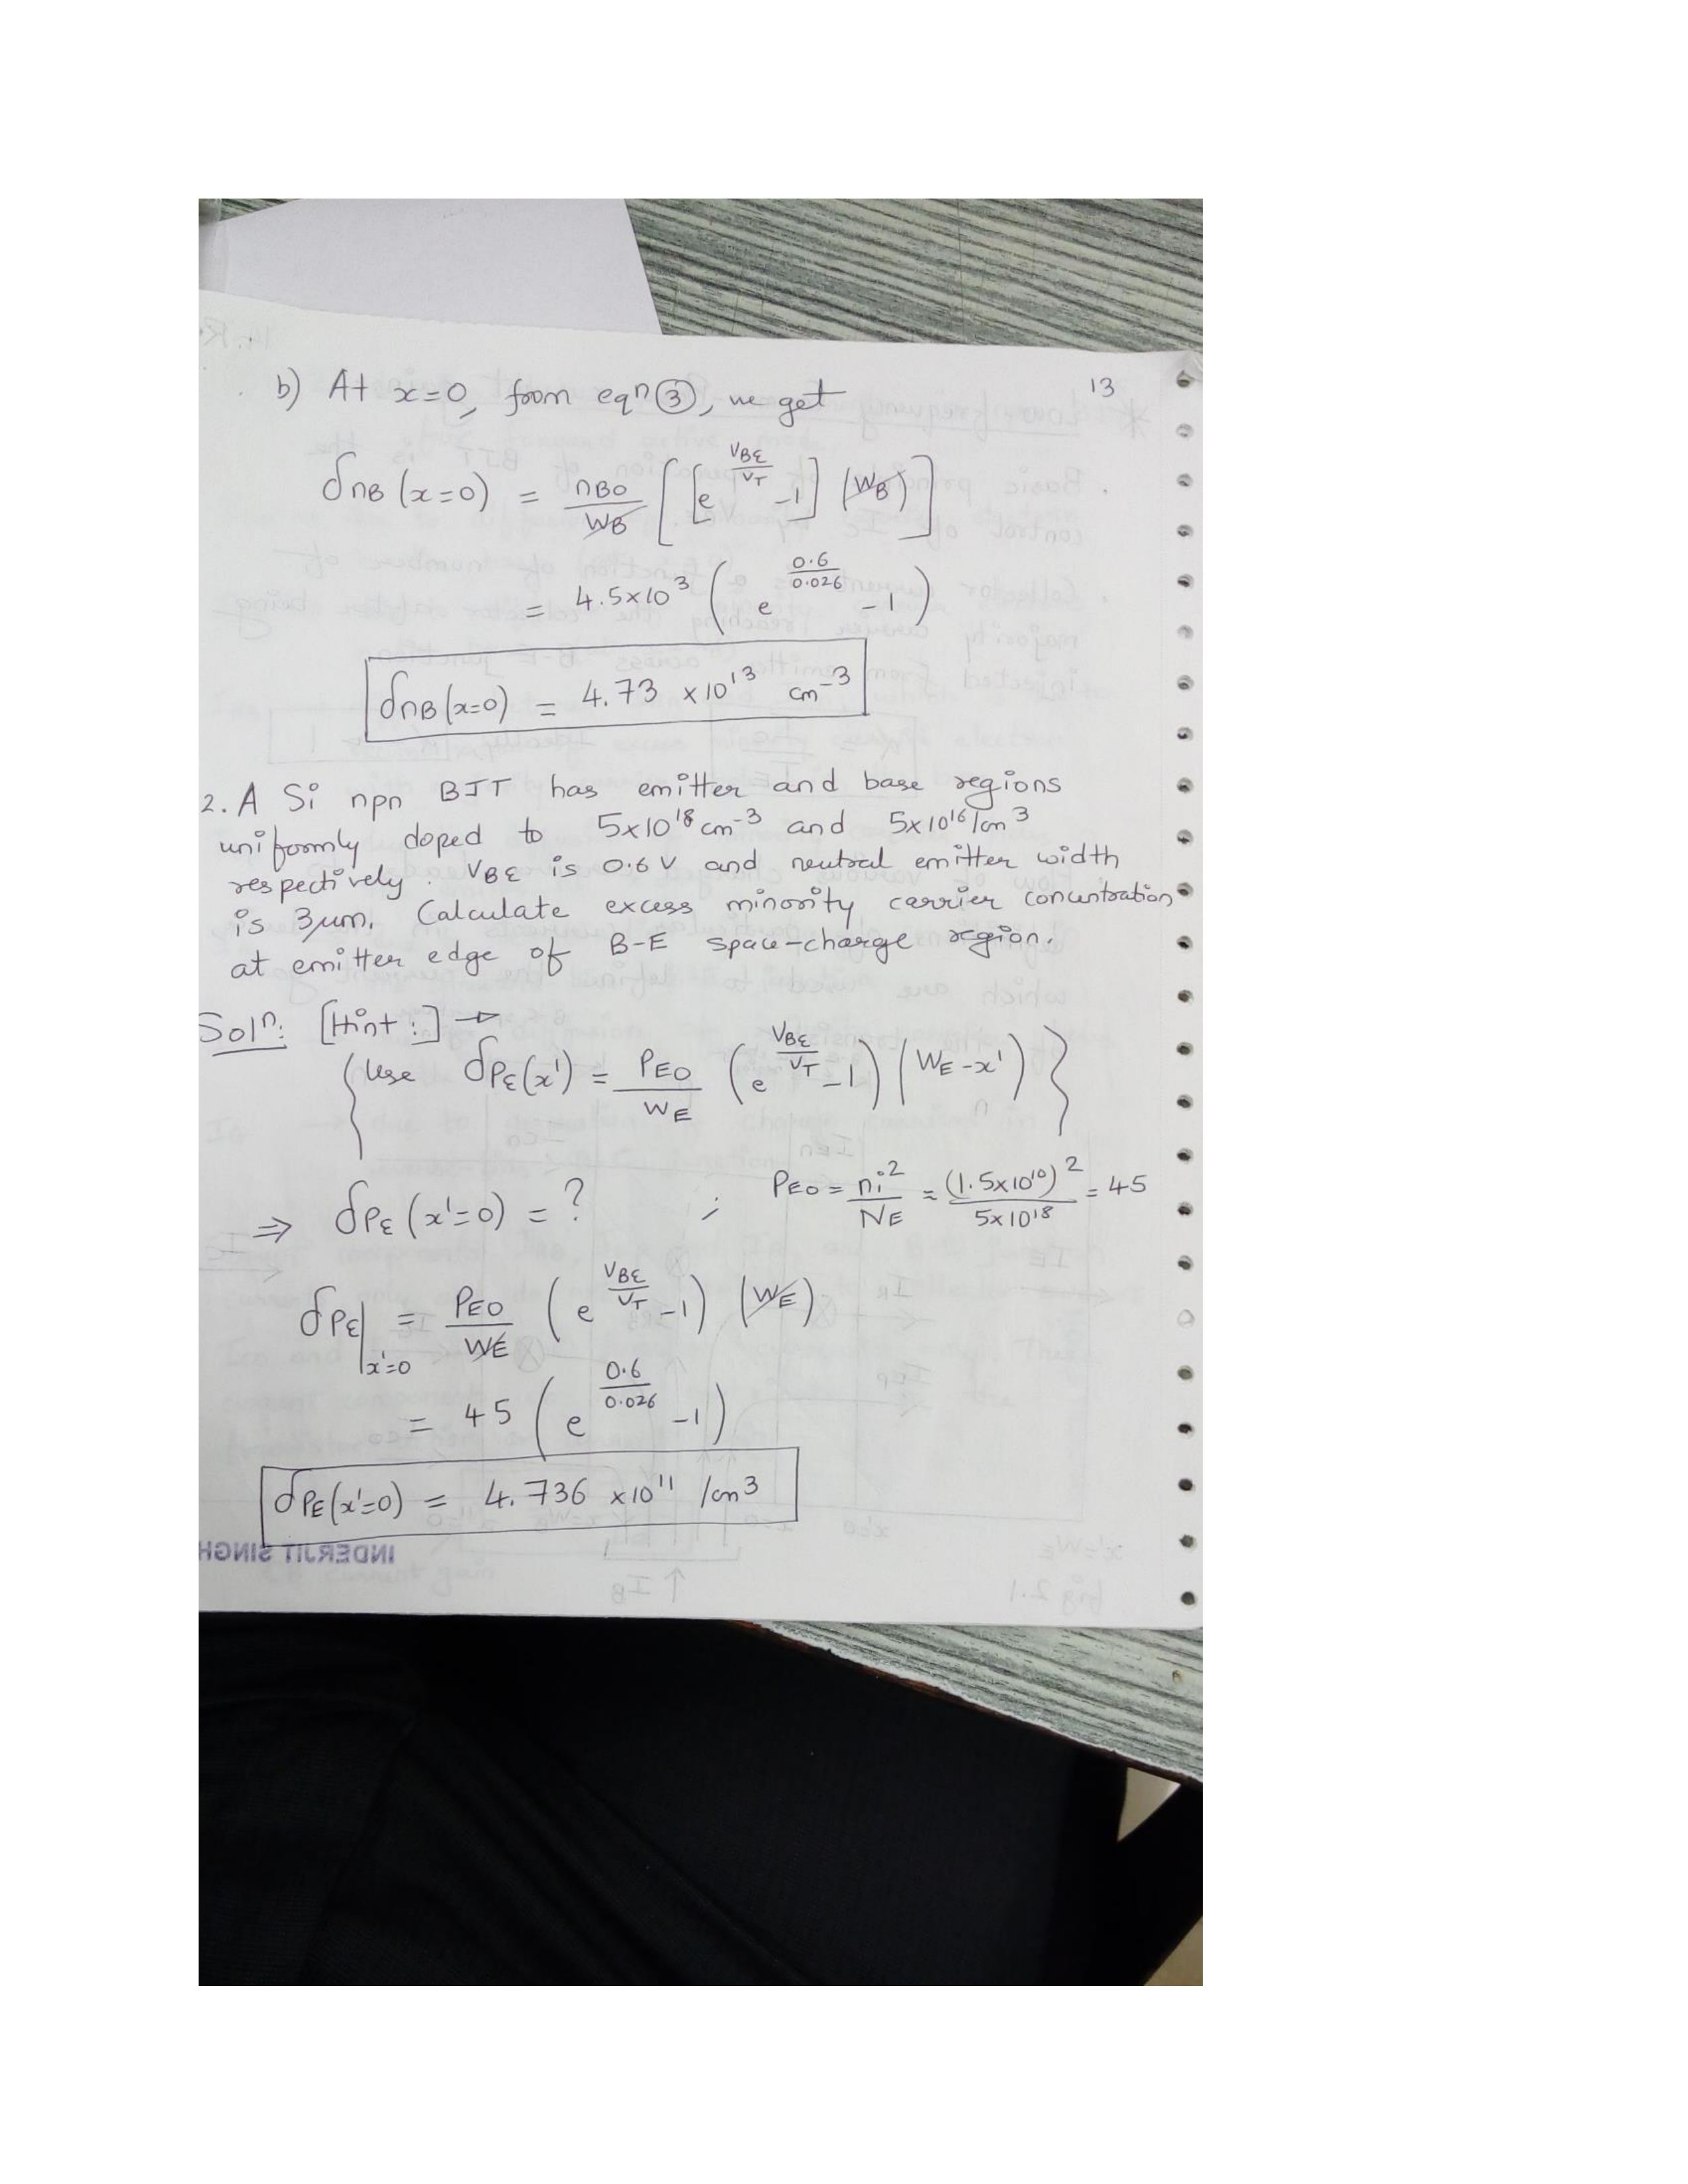 13
b) At x=0, from eqn ③, we get
δnB (x=0) = nBO/WB [[e^(VBE/VT) -1] (WB)]
= 4.5×10^3 (e^(0.6/0.026) -1)
δnB(x=0) = 4.73 ×10^13 cm^-3
2. A Si npn BJT has emitter and base regions
uniformly doped to 5×10^18 cm^-3 and 5×10^16/cm^3
respectively. VBE is 0.6 V and neutral emitter width
is 3μm. Calculate excess minority carrier concentration
at emitter edge of B-E space-charge region.
Soln: [Hint:] →
{Use δPE(x') = PEO/WE (e^(VBE/VT) -1) (WE-x')}
⇒ δPE (x'=0) = ? ; PEO = ni^2/NE = (1.5×10^10)^2/5×10^18 = 45
δPE|x'=0 = PEO/WE (e^(VBE/VT) -1) (WE)
= 45 (e^(0.6/0.026) -1)
δPE(x'=0) = 4.736 ×10^11 /cm^3
INDERJIT SINGH